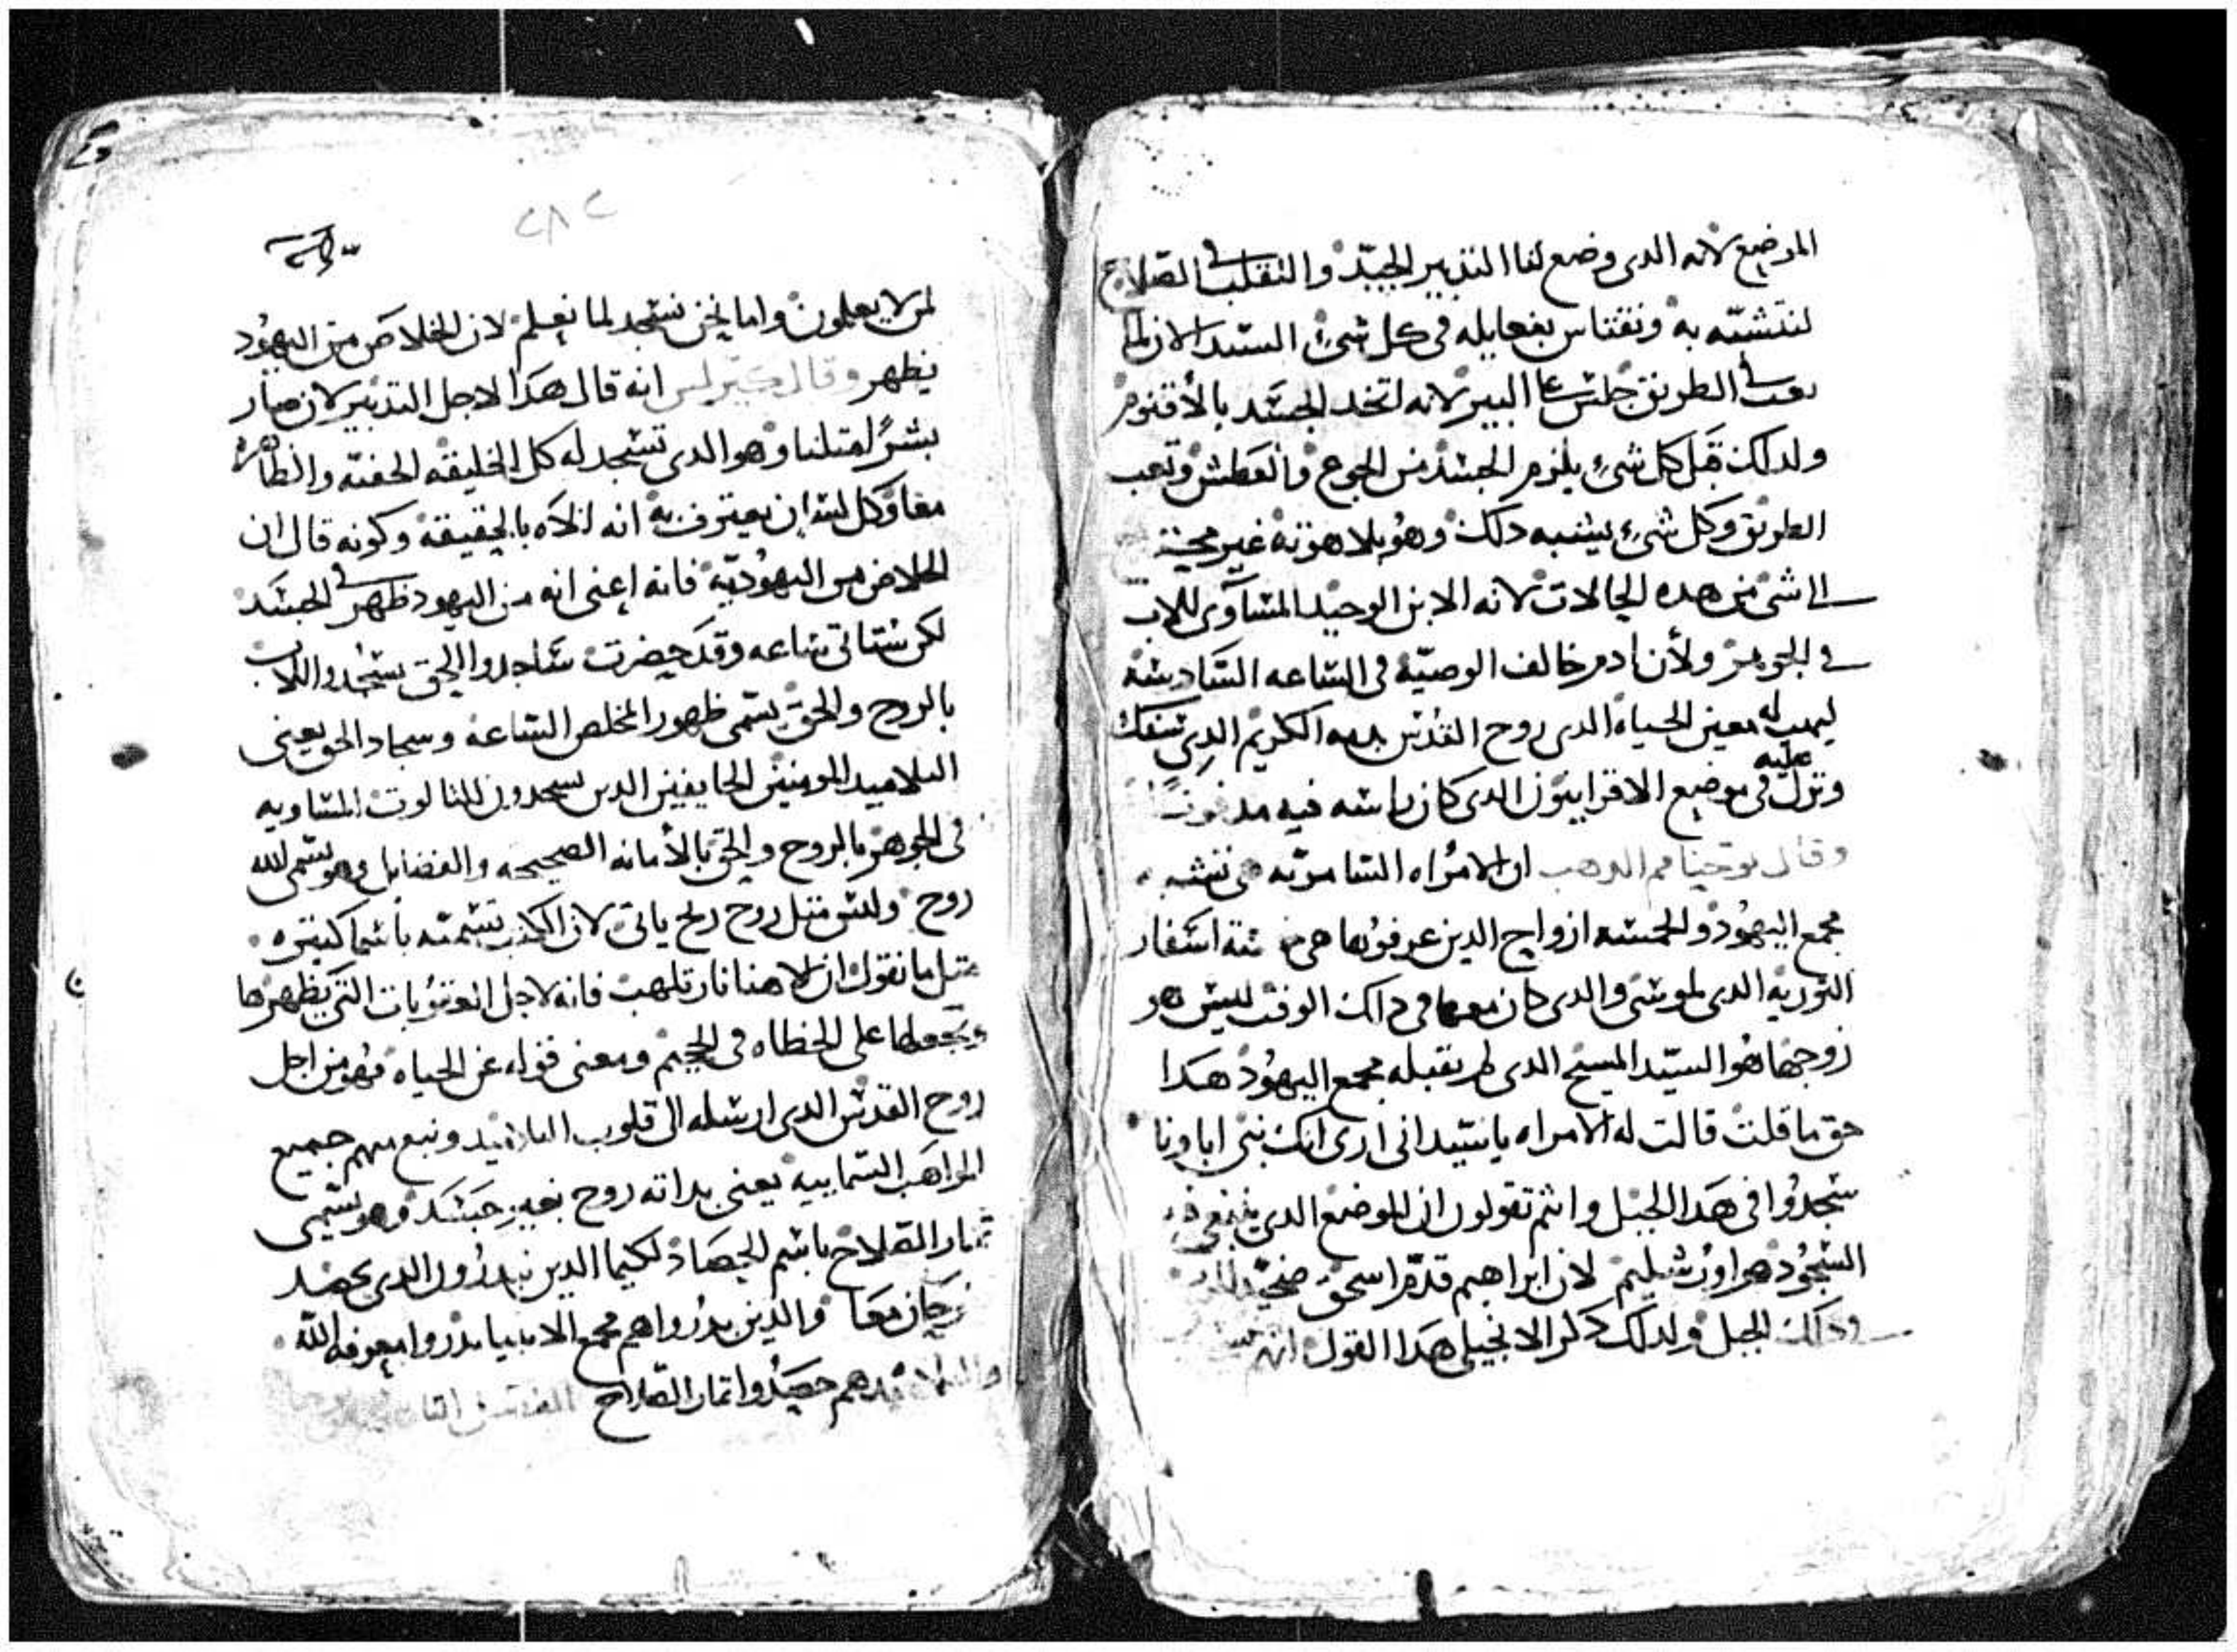 الموضع لانه الدى وضع لنا التدبير الجيد والتقلب في الصلاح
لنتشبه به ونقتاس بفعايله في كل شي السيد الان لما
تعب في الطريق جلس على البير لانه اتخد الجسد بالأقنوم
ولدلك قبل كل شي يلزم الجسد من الجوع والعطش وتعب
الطريق وكل شي يشبه دلك وهو بلاهوته غير محتاج
الى شي من هده الحالات لانه الابن الوحيد المساوى للاب
في الجوهر ولأن ادم خالف الوصية في الساعه السادسه
ليهب له معين الحياه الدى روح القدس بدمه الكريم الدى سفك
عليه
ونزل في موضع الاقرانيون الدى كان راسه فيه مدفونًا
وقال يوحنا فم الدهب ان الامراه السامريه هي تشبه
مجمع اليهود والخمسه ازواج الدين عرفوها هي خمسة اسفار
التوريه الدى لموسى والدى كان معها في داك الوقت ليس هو
زوجها هو السيد المسيح الدى لم يقبله مجمع اليهود هدا
حق ما قلت قالت له الامراه يا سيد انى ارى انك نبى اباونا
سجدوا في هدا الجبل وانتم تقولون ان الموضع الدى ينبغى فيه
السجود هو اورشليم لان ابراهيم قدم اسحق ضحيه
ودلك الجبل ولدلك دكر الانجيلى هدا القول
٢٨٢
لمن لا يعلمون واما نحن نسجد لما نعلم لان الخلاص من اليهود
يظهر وقال كيرلس انه قال هدا لاجل التدبير لان صار
بشرًا مثلنا وهو الدى تسجد له كل الخليقه الخفيه والظاهره
معا وكل لسان يعترف به انه الاه بالحقيقه وكونه قال ان
الخلاص من اليهوديه فانه اعنى انه من اليهود ظهر في الجسد
لكن ستاتى ساعه وقد حضرت ساجدوا الحق يسجدوا للاب
بالروح والحق يسمى ظهور المخلص الساعه وسجاد الحق يعنى
التلاميد المومنين الخايفين الدين يسجدون للثالوث المساويه
في الجوهر بالروح والحق بالأمانه الصحيحه والفضايل وهو يسمى لله
روح وليس مثل روح ريح ياتى لان الكتب تسميه باسما كثيره
مثل ما نقول ان الاهنا نار تلهب فانه لاجل العقوبات التى يظهرها
ويجعلها على الخطاه في الجحيم ومعنى قوله عن الحياه فهو من اجل
روح القدس الدى ارسله الى قلوب التلاميد ونبع منهم جميع
المواهب السماييه يعنى بداته روح بغير جسد وهو يسمى
ثمار الصلاح باسم الحصاد لكيما الدين يبدرون الدى يحصد
يفرحان معا والدين بدروا هم مجمع الانبيا بدروا معرفه الله
والتلاميد هم حصدوا اتمار الصلاح